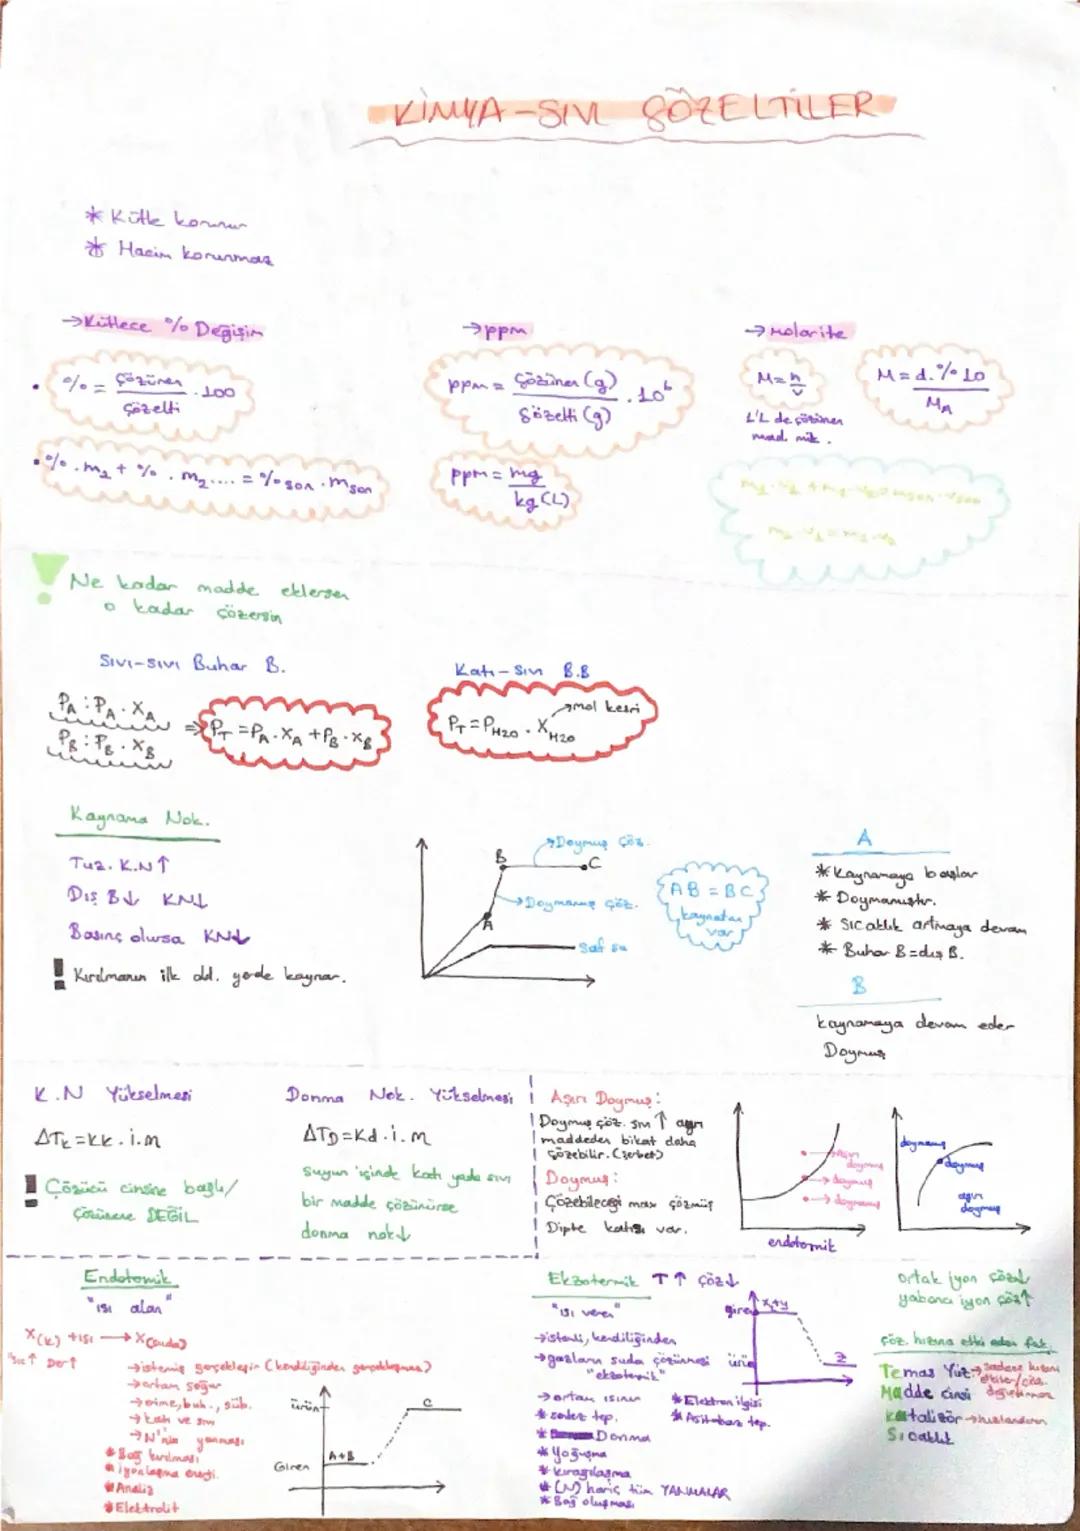 KİMYA-SIVI ÇÖZELTİLER
* Kütle korunur
* Hacim korunmaz
→Kütlece % Değişim
• % = Çözünen / Çözelti . 100
• %. m1 + % . m2.... = %son . mson
→ppm
ppm = Çözünen (g) / Çözelti (g) . 10⁶
ppm = mg / kg (L)
→Molarite
M = n / v
1'L de çözünen
mad. mik.
M = d.% 10 / MA
! Ne kadar madde eklersen
o kadar çözersin
Sıvı-sıvı Buhar B.
PA : PA . XA
PB : PB . XB
⇒ PT = PA . XA + PB . XB
Katı-Sıvı B.B
PT = PH2O . XH2O →mol kesri
Kaynama Nok.
Tuz. K.N↑
Dış B↓ KN↓
Basınç olursa KN↓
! Kırılmanın ilk old. yerde kaynar.
→Doymuş Çöz.
B
C
→Doymamış Çöz.
A
Saf su
AB = BC
kaynatan
var
A
* Kaynamaya başlar
* Doymamıştır.
* Sıcaklık artmaya devam
* Buhar B=dış B.
B
Kaynamaya devam eder
Doymuş
K.N Yükselmesi
ΔTk=kk.i.m
! Çözücü cinsine bağlı/
Çözünene DEĞİL
Donma Nok. Yükselmesi
ΔTD=Kd.i.m
suyun içinde katı yada sıvı
bir madde çözünürse
donma nok↓
Aşırı Doymuş:
Doymuş çöz. sıvı ↑ aşırı
maddeden bikat daha
çözebilir. (şerbet)
Doymuş:
Çözebileceği max çözmüş
Dipte katısı var.
→Aşırı
doymuş
→doymuş
→doymamış
endotermik
doymamış
doymuş
aşırı
doymuş
Endotermik
"ısı alan"
X(k) +ısı → X(suda)
"Sıc↑ Der↑
→istemiş gerçekleşir (kendiliğinden gerçekleşmez)
→ortam soğur
→erime, buh., süb.
→katı ve sıvı
→N'nin yanması
* Bağ kırılması
* iyonlaşma enerji.
* Analiz
* Elektrolit
ürün
C
Giren
A+B
Ekzotermik T↑ çöz↓
"ısı veren"
→istemli, kendiliğinden
→gazların suda çözünmesi
"ekzotermik"
→ortam ısınır
* Donma
* Yoğuşma
* kırağılaşma
* (N) hariç tüm YANMALAR
* Bağ oluşması
* Elektron ilgisi
* Asit-baz tep.
giren
x+y
ürün
z
ortak iyon çöz↓
yabancı iyon çöz↑
Çöz. hızına etki eden fak.
Temas Yüz→sadece hızını
etkiler/çöz.
Madde cinsi değiştirmez
katalizör→hızlandırır
Sıcaklık